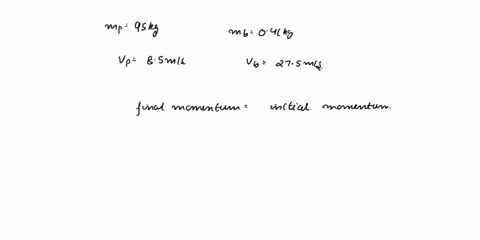 mp = 95kg mb = 0.41kg
vp = 8.5m/s vb = 27.5m/s
final momentum = initial momentum.